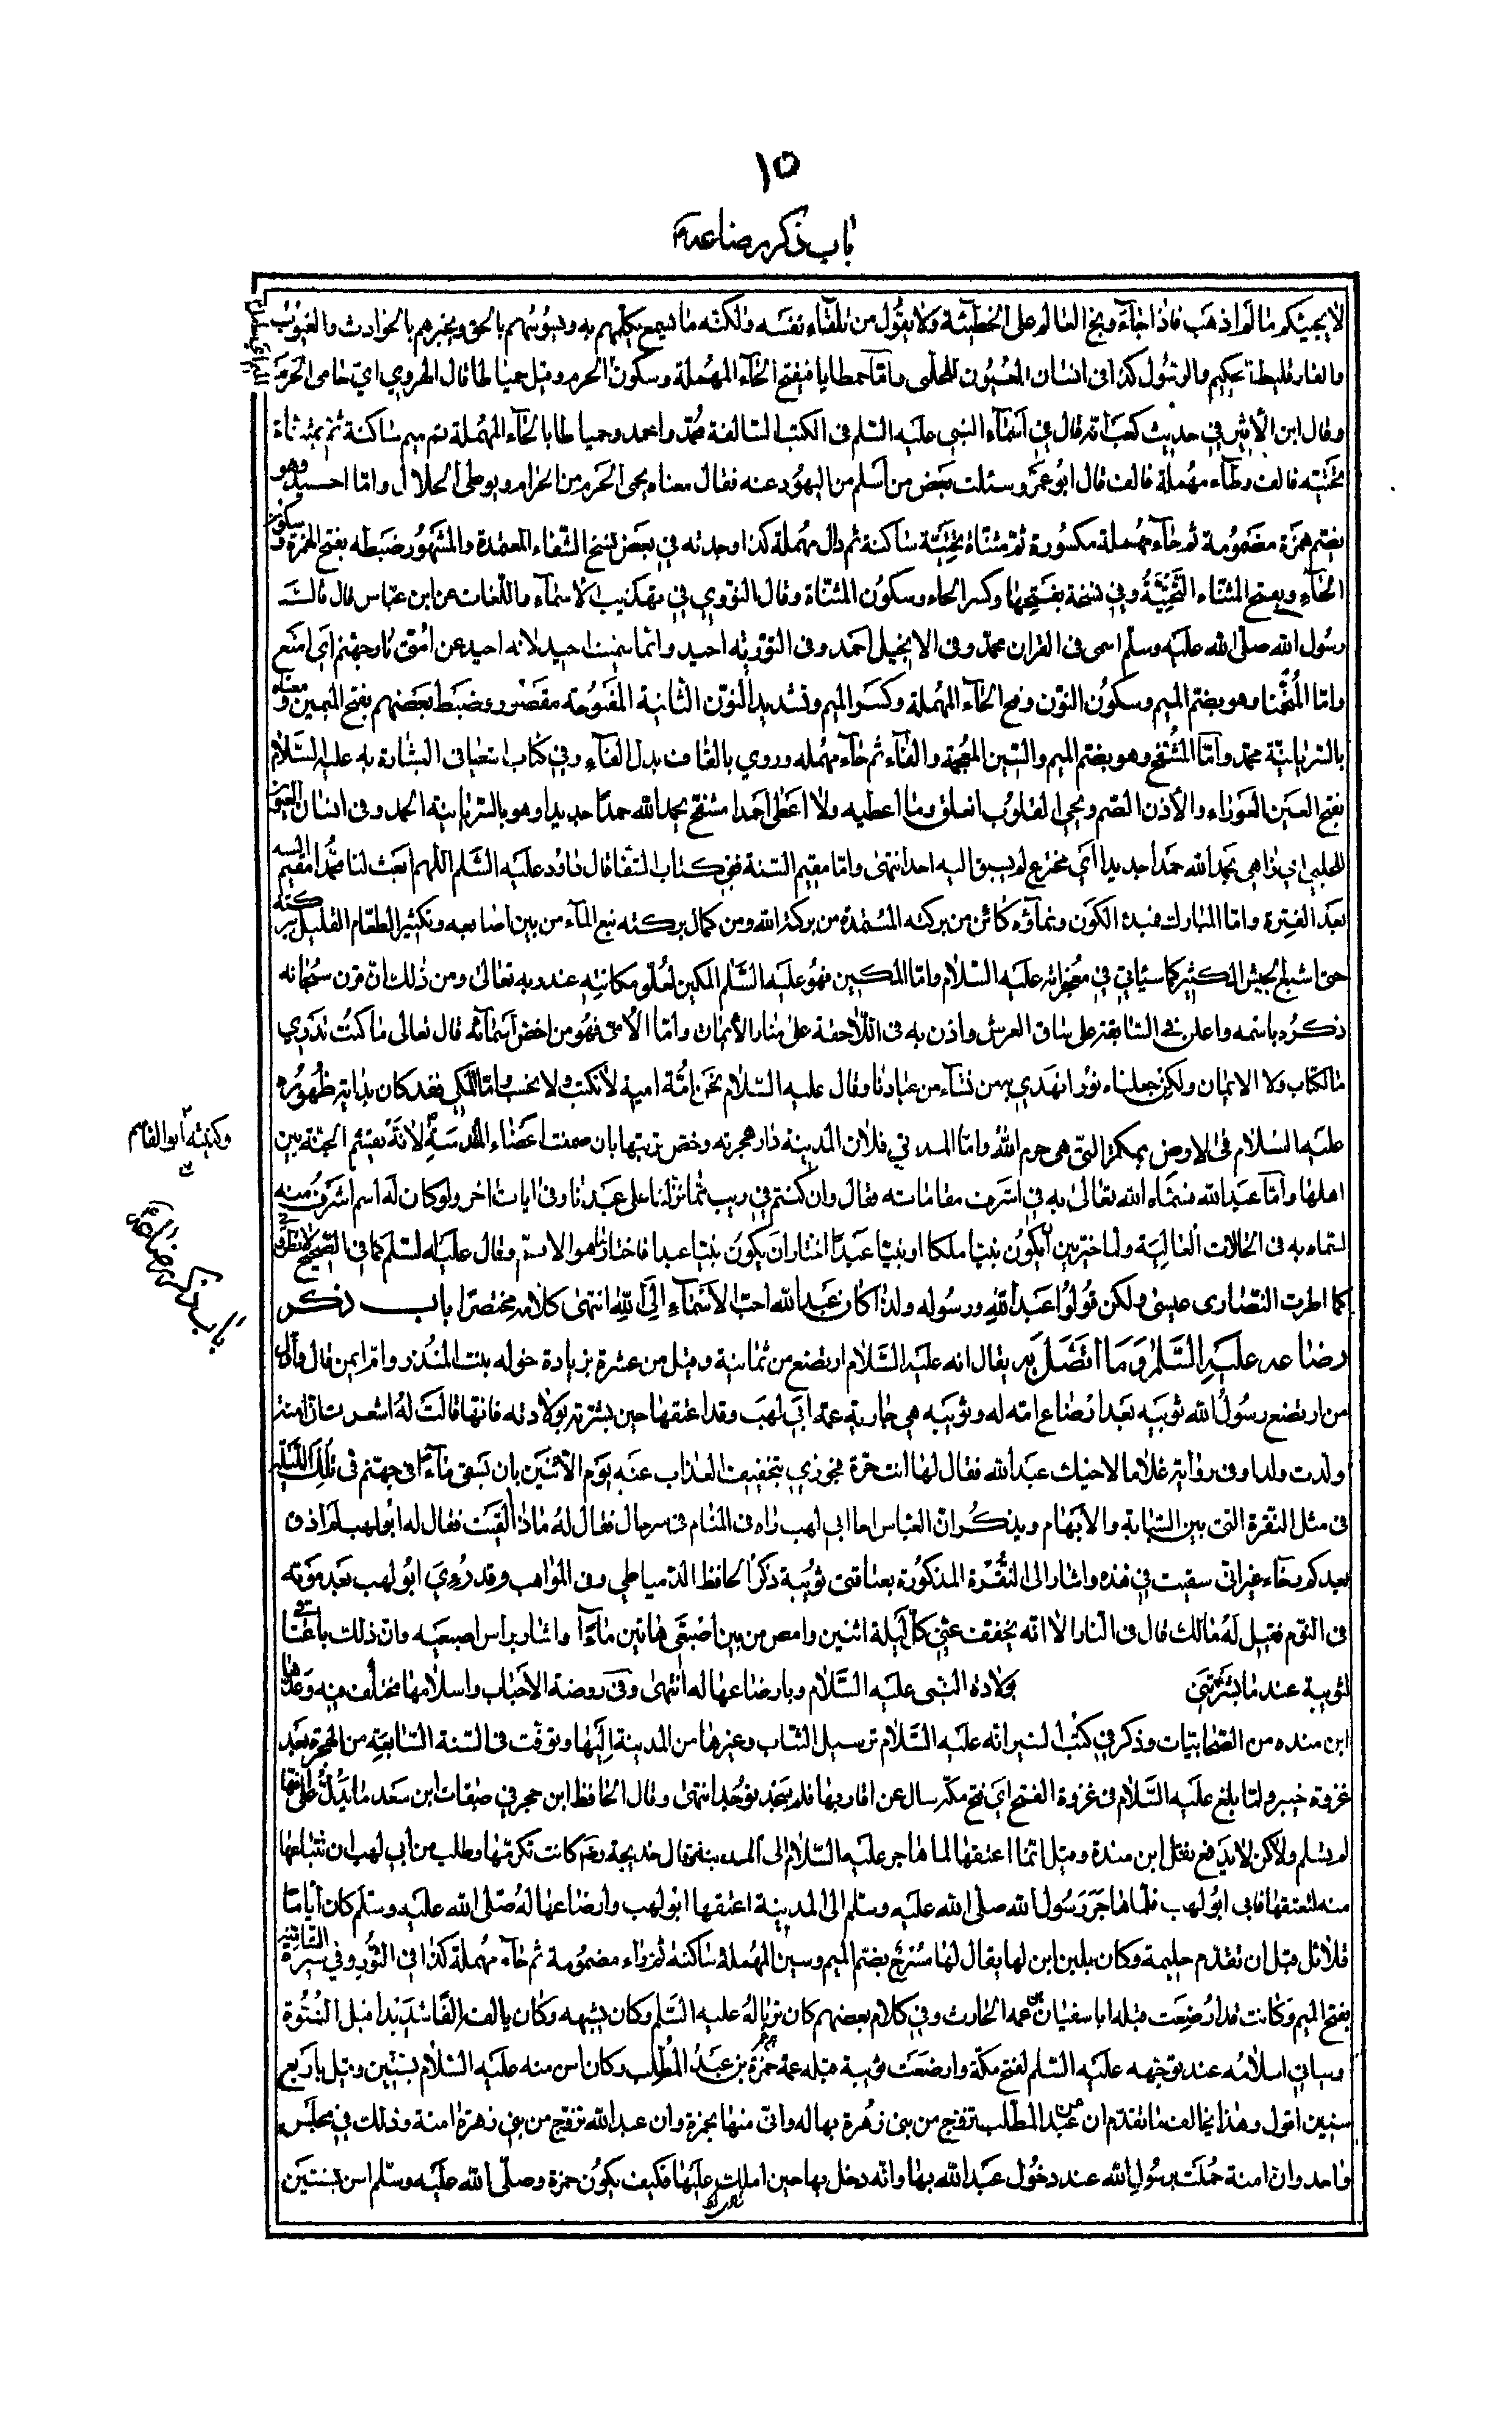 ١٥
باب ذكر رضاعه
لا يجيئكم ما لم اذهب فاذا جآء وبخ العالم على الخطيئة ولا يقول من تلقاء نفسه ولكنه ما يسمع يكلمهم به ويسوسهم بالحق ويخبرهم بالحوادث والغيوب
والفارقليط الحكيم والرسول كذا فى انسان العيون للحلبى وامّا حمطايا فبفتح الحآء المهملة وسكون الحرم وقيل حمياطا قال الهروي اي حامى الحرم
وقال ابن الأثير في حديث كعب انه قال في اسمآء النبى عليه السّلم فى الكتب السالفة محمّد واحمد وحمياطا بالحآء المهملة ثم ميم ساكنة ثم بمثناة
تحتيّه فالف وطآء مهملة فالف قال ابو عمرو سئلت بعض من اسلم من اليهود عنه فقال معناه يحمى الحرم من الحرام ويوطى الحلال واما احيد وهو
بضم همزة مضمومة ثم حآء مهملة مكسورة ثم مثناة تحتيّة ساكنة ثم دال مهملة كذا وجدته في بعض نسخ الشفاء المعتمدة والمشهور ضبطه بفتح الهمزة وسكون
الحآء وبفتح المثناء التحتيّة وفي نسخة بفتحها وكسر الحاء وسكون المثناة وقال النووي في تهذيب الاسمآء واللغات عن ابن عبّاس قال قال
رسول الله صلّى الله عليه وسلّم اسمى فى القران محمّد وفى الانجيل احمد وفى التورية احيد وانما سميت احيد لانه احيد عن امتى نار جهنم اى امنع
وامّا المُنْحَمِنّا وهو بضم الميم وسكون النون وفتح الحآء المهملة وكسر الميم وتشديد النون الثانية المفتوحة مقصور وضبط بعضهم بفتح الميمين ومعناه
بالسريانيّة محمد وامّا المُشَفَّح وهو بضم الميم والشين المعجمة والفآء ثم حآء مهمله وروي بالقاف بدل الفآء وفي كتاب اشعيا فى البشارة به عليه السّلام
يفتح العين العوراء والأذن الصم ويحيى القلوب الغلف وما اعطيه ولا اعطى احمدا مشفح يحمد الله حمدًا جديدا وهو بالسريانية الحمد وفى انسان العيون
للحلبى اي زاهى يحمد الله حمدا جديدا اي مخترع لم يسبق اليه احد انتهى وامّا مقيم السّنة ففى كتاب الشفا قال داود عليه السّلم اللهم ابعث لنا محمّدا مقيم السنة
بعد الفترة وامّا المبارك فبدء الكون ونماؤه كائن من بركته المستمدة من بركة الله ومن كمال بركته نبع المآء من بين اصابعه وتكثير الطعام القليل ببركته
حتى اشبع الجيش الكثير كما سيأتي في معجزاته عليه السّلام وامّا المكين فهو عليه السّلم المكين لعلو مكانته عند ربه تعالى ومن ذلك ان قرن سبحانه
ذكره باسمه واعلن في السّابقة على ساق العرش واذن به فى اللاحقة على منار الأيمان وامّا الأمى فهو من اخص اسمآئه قال تعالى ما كنت تدري
ما الكتاب ولا الايمان ولكن جعلناه نورا نهدي به من نشآء من عبادنا وقال عليه السّلام نحن امّة امية لا نكتب ولا نحسب وامّا المكى فقد كان بداية ظهوره
عليه السّلام فى الارض بمكة التى هى حرم الله وامّا المدني فلان المدينة دار هجرته وخص تربتها بان ضمنت اعضاءه المقدسة لانه يقسّم الجنّة بين
اهلها وامّا عبد الله فسمّاه الله تعالى به في اشرف مقاماته فقال وان كنتم في ريب مما نزلنا على عبدنا وفى ايات اخر ولو كان له اسم اشرف منه
لسمّاه به فى الحالات العالية ولما خيّر بين ان يكون نبيّا ملكا او نبيّا عبدًا اختار ان يكون نبيّا عبدا فاختار ما هو الاتم وقال عليه السّلم كما فى الصحيح لا تطروني
كما اطرت النّصارى عيسى ولكن قولوا عبد الله ورسوله ولذا كان عبد الله احبّ الاسمآء الى الله انتهى كلامه مختصرا باب ذكر
رضاعه عليه السّلم وما اتصل به يقال انه عليه السّلام ارتضع من ثمانية وقيل من عشرة بزيادة خوله بنت المنذر وام ايمن قال واول
من ارتضع رسول الله ثويبه بعد ارضاع امه له وثويبه هي جارية عمه ابي لهب وقد اعتقها حين بشرته بولادته فانها قالت له اشعرت ان امنة
ولدت ولدا وفى رواية غلاما لاخيك عبد الله فقال لها انت حرة فجوزي بتخفيف العذاب عنه يوم الاثنين بان يسقى مآءً فى جهنم فى تلك الليلة
فى مثل النقرة التى بين السّبابة والابهام ويذكر ان العبّاس اخا ابى لهب راه فى المنام فى سرحال فقال له ماذا لقيت فقال له ابو لهب لم اذق
بعدكم رخآء غير انّى سقيت في هذه واشار الى النقرة المذكورة بعتاقتى ثويبة ذكره الحافظ الدمياطي وفى المواهب وقد رُؤي ابو لهب بعد موته
فى النوم فقيل له ما لك قال فى النار الا انه يخفف عنّي كل ليلة اثنين وامص من بين اصبعى هاتين ماءً واشار براس اصبعيه وان ذلك باعتاقى
لثويبة عند ما بشرتنى بولادة النبى عليه السّلام وبارضاعها له انتهى وفى روضة الاحباب واسلامها مختلف فيه وعدها
ابن منده من الصّحابيّات وذكر في كتب السّير انّه عليه السّلام ترسيل الثياب وغيرها من المدينة اليها وتوفّت فى السنة السّابعة من الهجرة بعد
غزوة خيبر ولما بلغ عليه السّلام فى غزوة الفتح اي فتح مكة سال عن اقاربها فلم يجد يوجد انتهى وقال الحافظ ابن حجر في طبقات ابن سعد ما يدل على انها
لم يسلم ولاكن لا يدفع نقل ابن مندة وقيل انما اعتقها لما هاجر عليه السّلام الى المدينة قال خديجة رضه كانت تكرمها وطلب من ابي لهب ان تبتاعها
منه لتعتقها فابى ابو لهب فلمّا هاجر رسول الله صلى الله عليه وسلّم الى المدينة اعتقها ابو لهب وارضاعها له صلّى الله عليه وسلّم كان أيامًا
قلائل قبل ان تقدم حليمة وكان بلبن ابن لها يقال لها مسْرُح بضم الميم وسين المهملة ساكنة ثم راء مضمومة ثم حآء مهملة كذا فى النور وفي سيرة الشامية
بفتح الميم وكانت قد ارضعت قبله ابا سفيان بن عمه الحارث وفي كلام بعضهم كان تربا له عليه السّلم وكان يشبهه وكان يالفه الفا شديدا قبل النبوّة
وسياتي اسلامه عند توجهه عليه السّلم لفتح مكّة وارضعت ثويبة قبله عمه حمزة بن عبد المطلب وكان اسن منه عليه السّلام بسنتين وقيل باربع
سنين اقول وهذا يخالف ما تقدّم ان عبد المطلب تزوج من بنى زهرة بهاله واتى منها بحمزة وان عبد الله تزوج من بنى زهرة امنة وذلك في مجلس
واحد وان امنة حملت برسول الله عند دخول عبد الله بها وانه دخل بها حين املك عليها فكيف يكون حمزة وصلّى الله عليه وسلّم اسن بسنتين
وكنيته ابو القاسم
باب ذكر رضاعه